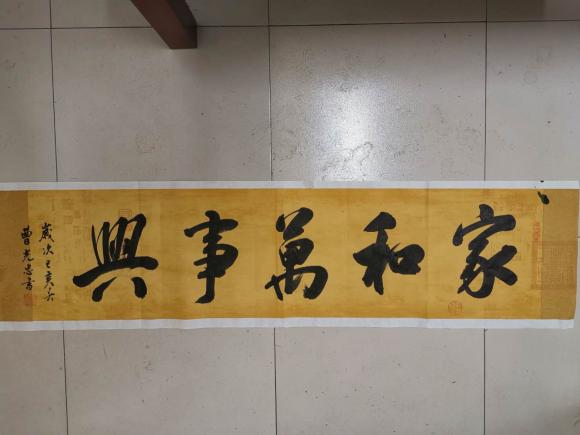 家和萬事興
歲次己亥年
曹光忠書